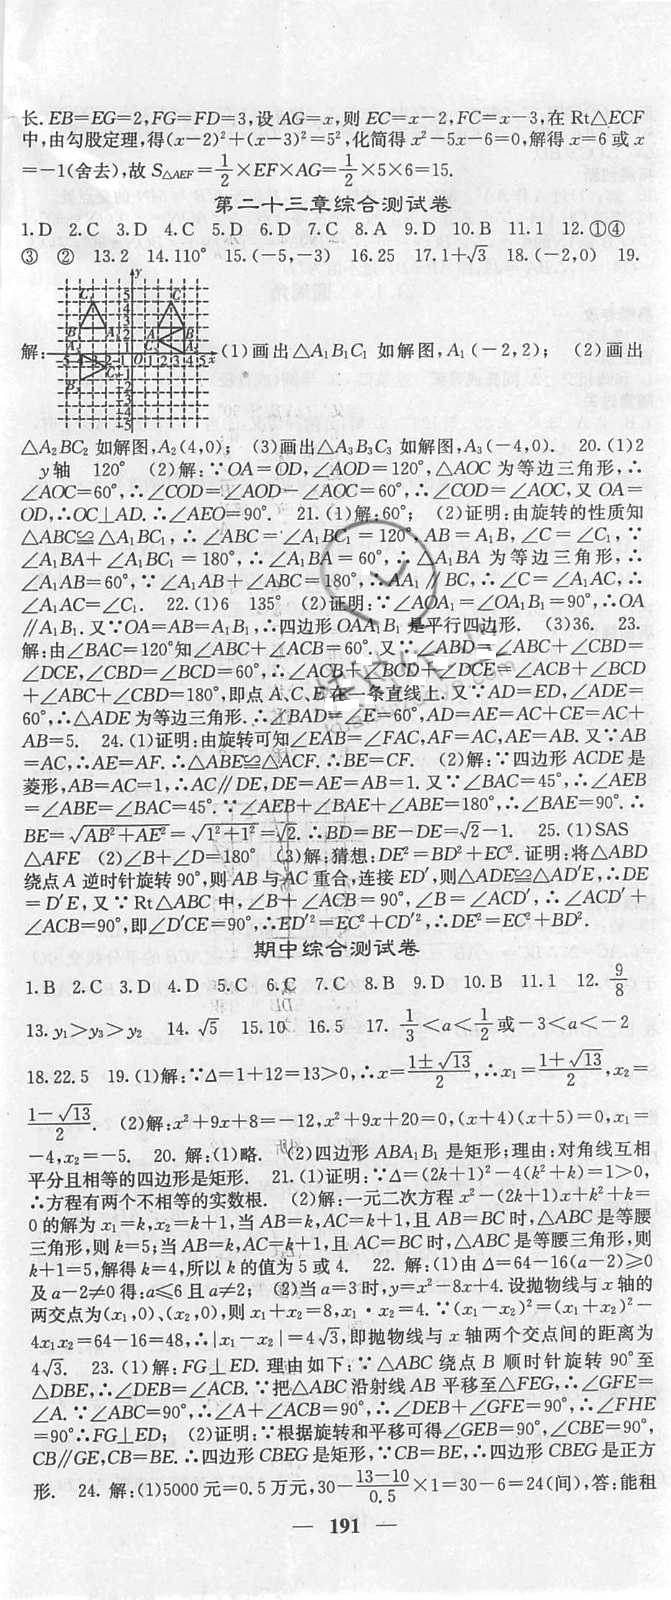 长. EB=EG=2,FG=FD=3,设 AG=x,则 EC=x-2,FC=x-3,在 Rt△ECF
中,由勾股定理,得(x-2)²+(x-3)²=5²,化简得 x²-5x-6=0,解得 x=6 或 x
=-1(舍去),故 S△AEF=1/2×EF×AG=1/2×5×6=15.
第二十三章综合测试卷
1. D 2. C 3. D 4. C 5. D 6. D 7. C 8. A 9. D 10. B 11. 1 12. ①④
③ ② 13. 2 14. 110° 15. (-5,-3) 16. 25 17. 1+√3 18. (-2,0) 19.
解: (1)画出△A₁B₁C₁ 如解图,A₁(-2,2); (2)画出
△A₂BC₂ 如解图,A₂(4,0); (3)画出△A₃B₃C₃ 如解图,A₃(-4,0). 20. (1)2
y轴 120° (2)解:∵OA=OD,∠AOD=120°,△AOC 为等边三角形,∴
∠AOC=60°,∴∠COD=∠AOD-∠AOC=60°,∴∠COD=∠AOC,又 OA=
OD,∴OC⊥AD. ∴∠AEO=90°. 21. (1)解:60°; (2)证明:由旋转的性质知
△ABC≌△A₁BC₁,∴∠ABC=∠A₁BC₁=120°,AB=A₁B,∠C=∠C₁,∵
∠A₁BA+∠A₁BC₁=180°,∴∠A₁BA=60°,∴△A₁BA 为等边三角形,∴
∠A₁AB=60°,∵∠A₁AB+∠ABC=180°,∴AA₁∥BC,∴∠C=∠A₁AC,∴
∠A₁AC=∠C₁. 22. (1)6 135° (2)证明:∵∠AOA₁=∠OA₁B₁=90°,∴OA
∥A₁B₁. 又∵OA=AB=A₁B₁,∴四边形 OAA₁B₁ 是平行四边形. (3)36. 23.
解:由∠BAC=120°知∠ABC+∠ACB=60°. 又∵∠ABD=∠ABC+∠CBD=
∠DCE,∠CBD=∠BCD=60°,∴∠ACB+∠BCD+∠DCE=∠ACB+∠BCD
+∠ABC+∠CBD=180°,即点 A、C、E 在一条直线上. 又∵AD=ED,∠ADE=
60°,∴△ADE 为等边三角形. ∴∠BAD=∠E=60°,AD=AE=AC+CE=AC+
AB=5. 24. (1)证明:由旋转可知∠EAB=∠FAC,AF=AC,AE=AB. 又∵AB
=AC,∴AE=AF. ∴△ABE≌△ACF. ∴BE=CF. (2)解:∵四边形 ACDE 是
菱形,AB=AC=1,∴AC∥DE,DE=AE=AB=1. 又∵∠BAC=45°,∴∠AEB
=∠ABE=∠BAC=45°. ∵∠AEB+∠BAE+∠ABE=180°,∴∠BAE=90°. ∴
BE=√(AB²+AE²)=√(1²+1²)=√2. ∴BD=BE-DE=√2-1. 25. (1)SAS
△AFE (2)∠B+∠D=180° (3)解:猜想:DE²=BD²+EC². 证明:将△ABD
绕点 A 逆时针旋转 90°,则 AB 与 AC 重合,连接 ED′,则△ADE≌△AD′E,∴DE
=D′E,又∵Rt△ABC 中,∠B+∠ACB=90°,∠B=∠ACD′,∴∠ACD′+
∠ACB=90°,即∠D′CE=90°,∴ED′²=EC²+CD′²,∴DE²=EC²+BD².
期中综合测试卷
1. B 2. C 3. D 4. D 5. C 6. C 7. C 8. B 9. D 10. B 11. 1 12. 9/8
13. y₁>y₃>y₂ 14. √5 15. 10 16. 5 17. 1/3<a<1/2或-3<a<-2
18. 22.5 19. (1)解:∵Δ=1+12=13>0,∴x=(1±√13)/2,∴x₁=(1+√13)/2,x₂=
(1-√13)/2. (2)解:x²+9x+8=-12,x²+9x+20=0,(x+4)(x+5)=0,x₁=
-4,x₂=-5. 20. 解:(1)略. (2)四边形 ABA₁B₁ 是矩形;理由:对角线互相
平分且相等的四边形是矩形. 21. (1)证明:∵Δ=(2k+1)²-4(k²+k)=1>0,
∴方程有两个不相等的实数根. (2)解:一元二次方程 x²-(2k+1)x+k²+k=
0 的解为 x₁=k,x₂=k+1,当 AB=k,AC=k+1,且 AB=BC 时,△ABC 是等腰
三角形,则 k=5;当 AB=k,AC=k+1,且 AC=BC 时,△ABC 是等腰三角形,则
k+1=5,解得 k=4,所以 k 的值为 5 或 4. 22. 解:(1)由 Δ=64-16(a-2)≥0
及 a-2≠0 得:a≤6 且 a≠2; (2)当 a=3 时,y=x²-8x+4. 设抛物线与 x 轴的
两交点为(x₁,0)、(x₂,0),则 x₁+x₂=8,x₁·x₂=4. ∵(x₁-x₂)²=(x₁+x₂)²-
4x₁x₂=64-16=48,∴|x₁-x₂|=4√3,即抛物线与 x 轴两个交点间的距离为
4√3. 23. (1)解:FG⊥ED. 理由如下:∵△ABC 绕点 B 顺时针旋转 90°至
△DBE,∴∠DEB=∠ACB. ∵把△ABC 沿射线 AB 平移至△FEG,∴∠GFE=
∠A. ∵∠ABC=90°,∴∠A+∠ACB=90°,∴∠DEB+∠GFE=90°,∴∠FHE
=90°∴FG⊥ED; (2)证明:∵根据旋转和平移可得∠GEB=90°,∠CBE=90°,
CB∥GE,CB=BE. ∴四边形 CBEG 是矩形,∵CB=BE,∴四边形 CBEG 是正方
形. 24. 解:(1)5000 元=0.5 万元,30-(13-10)/0.5×1=30-6=24(间),答:能租
— 191 —